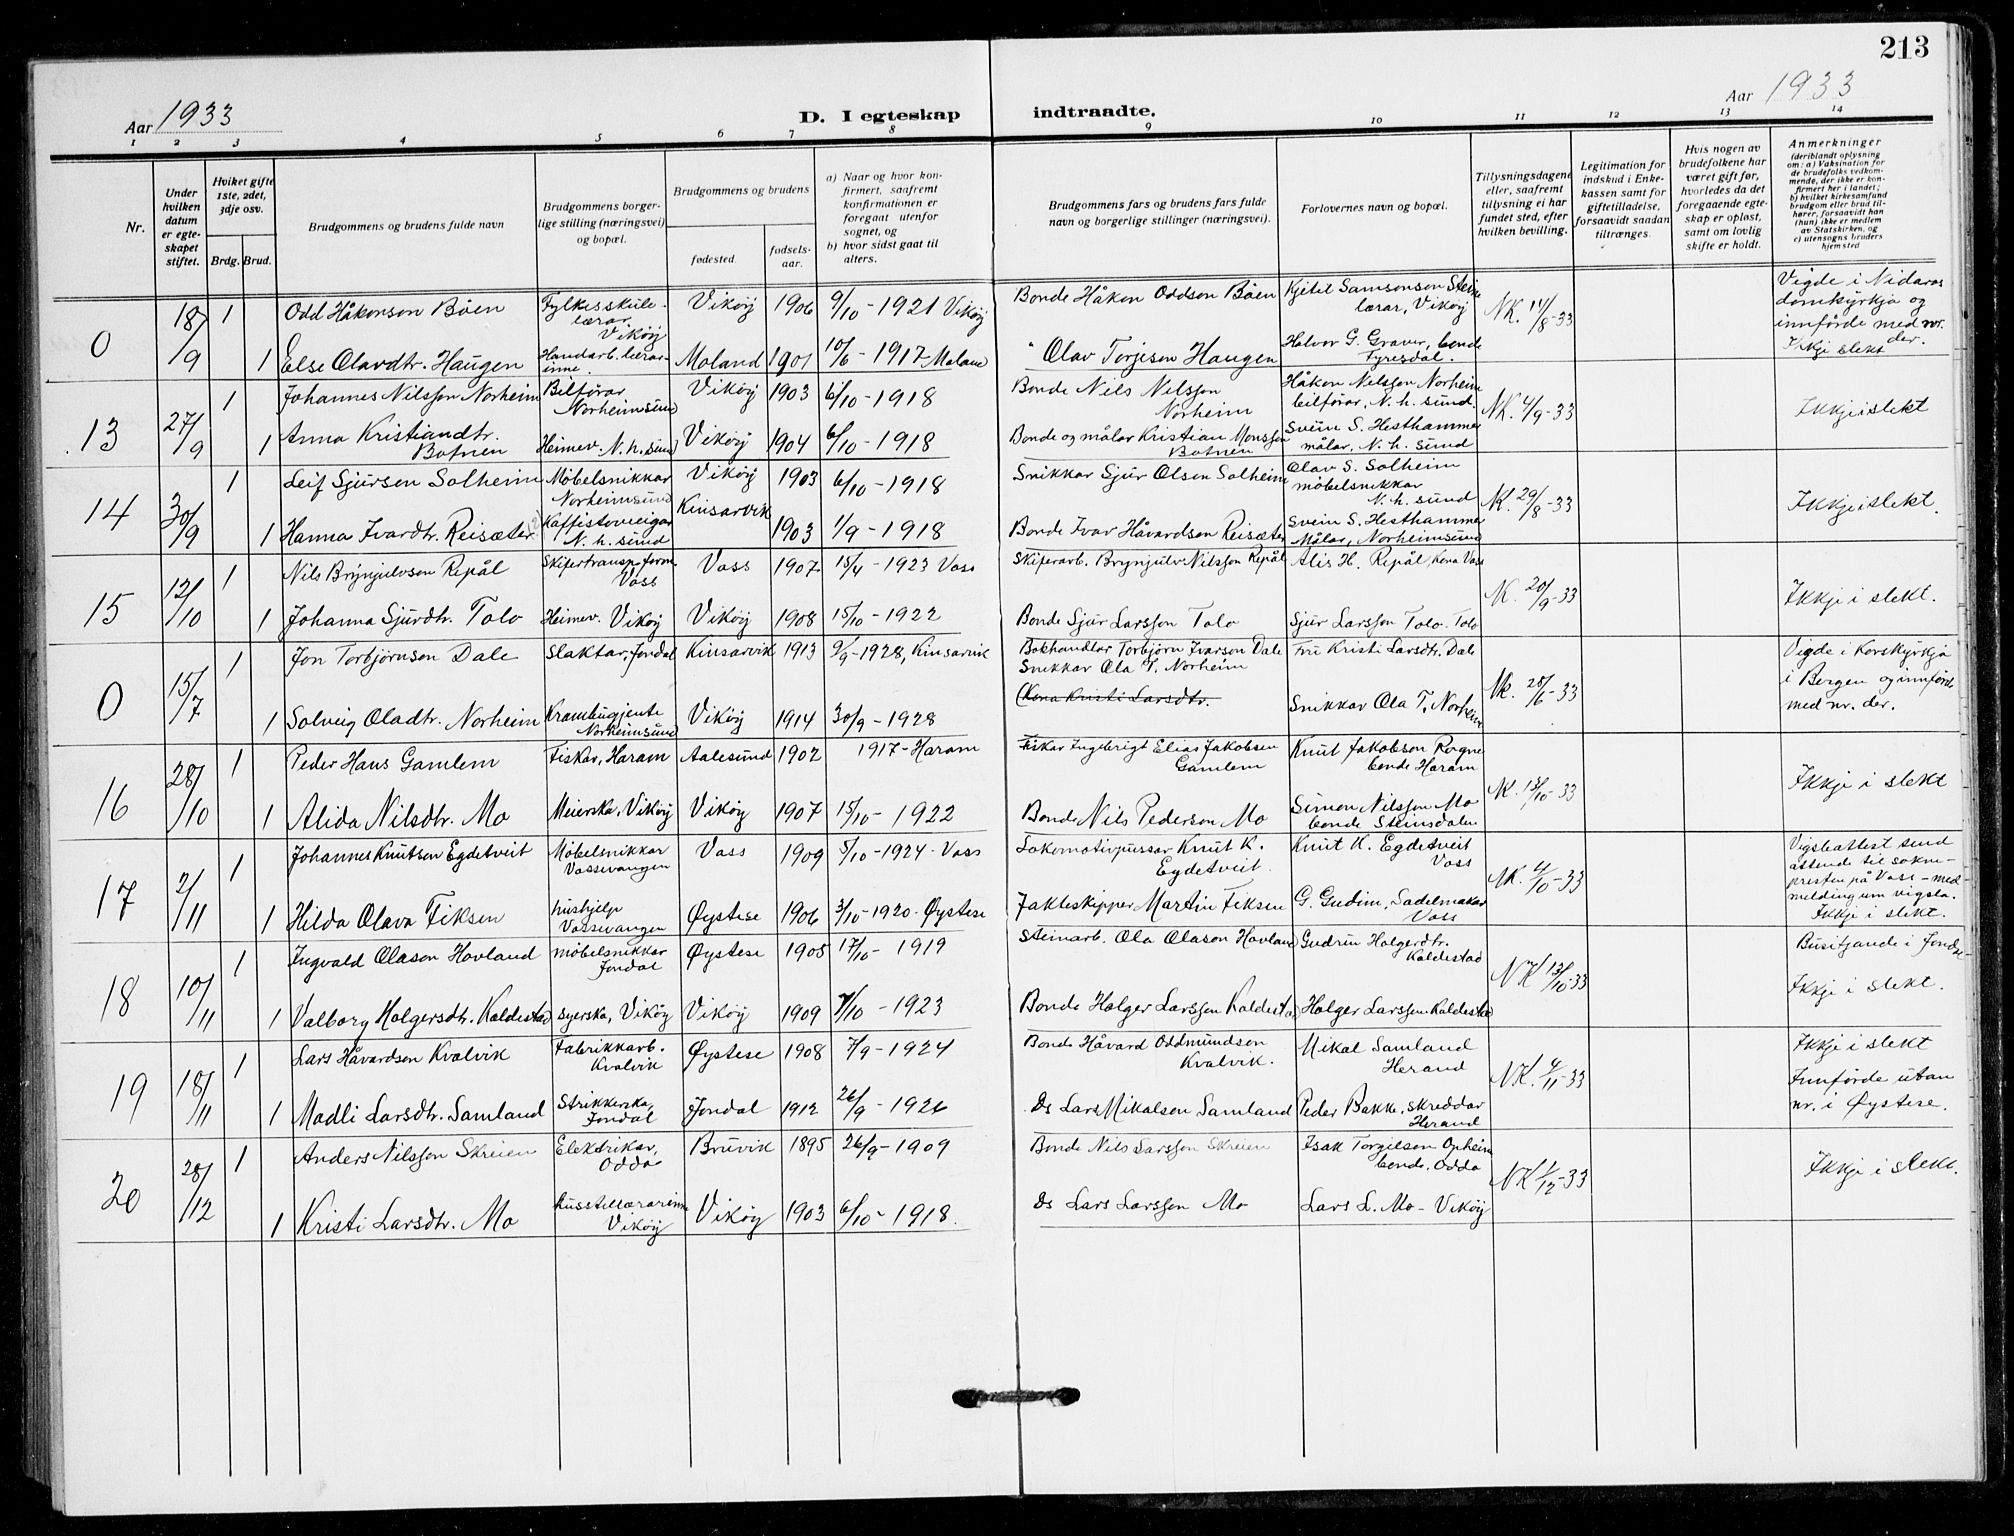 213
Aar 1933
D. I egteskap indtraadte.
Aar 1933
1 2 3 4 5 6 7 8 9 10 11 12 13 14
Nr.
Under hvilken datum er egteskapet stiftet.
Hviket gifte 1ste, 2det, 3dje osv.
Brdg. Brud.
Brudgommens og brudens fulde navn
Brudgommens borgerlige stilling (næringsvei) og bopæl.
Brudgommens og brudens
fødested.
fødselsaar.
a) Naar og hvor konfirmert, saafremt konfirmationen er foregaat utenfor sognet, og
b) hvor sidst gaat til alters.
Brudgommens fars og brudens fars fulde navn og borgerlige stillinger (næringsvei).
Forlovernes navn og bopæl.
Tillysningsdagene eller, saafremt tillysning ei har fundet sted, efter hvilken bevilling.
Legitimation for indskud i Enkekassen samt for giftetilladelse, forsaavidt saadan tiltrænges.
Hvis nogen av brudefolkene har været gift før, hvorledes da det foregaaende egteskap er opløst, samt om lovlig skifte er holdt.
Anmerkninger (deriblandt oplysning om: a) Vaksination for de brudefolks vedkommende, der ikke er konfirmert her i landet; b) hvilket kirkesamfund brudgom eller brud tilhører, forsaavidt han (hun) ikke er medlem av Statskirken, og c) utensogns bruders hjemsted
0 18/9 1 Odd Håkonson Bøen Fylkesskulelærar, Vikøy Vikøy 1906 9/10 - 1921 Vikøy Bonde Håkon Oddson Bøen Kjetil Samsonson Steine lærar, Vikøy NK. 14/8-33 Vigde i Nidaros domkyrkja og innførde med nr. der. Ikkje slekt
1 Else Olavdtr. Haugen Handarb. lærarinne. Moland 1901 10/6 - 1917 Moland " Olav Torjeson Haugen Halvor G. Graver, bonde Fyresdal.
13 27/9 1 Johannes Nilsson Norheim Bilførar Norheimsund Vikøy 1903 6/10 - 1918 Bonde Nils Nilsson Norheim Håkon Nilsson Norheim bilførar, N. h. sund. NK. 4/9-33 Ikkje i slekt
1 Anna Kristiandtr. Botnen Heimev. N. h. sund Vikøy 1904 6/10 - 1918 Bonde og målar Kristian Monsson Botnen Svein S. Hesthammer målar, N. h. sund
14 30/9 1 Leif Sjursen Solheim Møbelsnikkar Norheimsund Vikøy 1903 6/10 - 1918 Snikkar Sjur Olsen Solheim Olav S. Solheim møbelsnikkar N. h. sund NK. 29/8-33 Ikkje i slekt.
1 Hanna Ivardtr. Reisæter N. h. sund Kinsarvik 1903 1/9 - 1918 Bonde Ivar Håvardson Reisæter Svein S. Hesthammer Målar, Norheimsund
15 12/10 1 Nils Brynjulvson Repål Skifertransp. form. Voss Voss 1907 15/4 - 1923 Voss Skiferarb. Brynjulv Nilsson Repål Alis H. Repål, kona Voss NK. 20/9-33 Ikkje i slekt.
1 Johanna Sjurdtr. Tolo Heimev. Vikøy Vikøy 1908 15/10 - 1922 Bonde Sjur Larsson Tolo Sjur Larsson Tolo. Tolo
0 15/7 1 Jon Torbjørnson Dale Slaktar, Jondal Kinsarvik 1913 9/9 - 1928, Kinsarvik Bokhandlar Torbjørn Ivarson Dale Fru Kristi Larsdtr. Dale NK. 28/6-33 Vigde i Korskyrkja i Bergen og innførde med nr. der.
Snikkar Ola T. Norheim
1 Solveig Oladtr. Norheim Krambugjente Norheimsund Vikøy 1914 30/9 - 1928 (Kona Kristi Larsdtr. Snikkar Ola T. Norheim
16 28/10 1 Peder Hans Gamlem Fiskar, Haram Aalesund 1902 1917 - Haram Fiskar Ingebrigt Elias Jakobsen Gamlem Knut Jakobson Rogne bonde Haram NK. 13/10-33 Ikkje i slekt
1 Alida Nilsdtr. Mo Meierska, Vikøy Vikøy 1907 15/10 - 1922 Bonde Nils Pederson Mo Simon Nilsson Mo bonde Steinsdalen
17 2/11 1 Johannes Knutsen Egdetveit Møbelsnikkar Vossevangen Voss 1909 5/10 - 1924. Voss Lokomotivpussar Knut K. Egdetveit Knut K. Egdetveit Voss NK. 4/10-33 Vigsleattest send attende til sokneprestenpå Voss - med melding um vigsla. Ikkje i slekt.
1 Hilda Olava Fiksen hushjelp Vossevangen Øystese 1906 3/10 - 1920. Øystese Jakteskipper Martin Fiksen G. Gudim, Sadelmakar Voss
18 10/11 1 Ingvald Olason Hovland møbelsnikkar Jondal Øystese 1905 17/10 - 1919 Steinarb. Ola Olason Hovland Gudrun Holgerdtr. Kaldestad NK 13/10-33 Busitjande i Jondal Ikkje i slekt.
1 Valborg Holgersdtr. Kaldestad syerska, Vikøy Vikøy 1909 7/10 - 1923 Bonde Holger Larsson Kaldestad Holger Larsson Kaldestad
19 18/11 1 Lars Håvardson Kvalvik Fabrikkarb. Kvalvik Øystese 1908 7/9 - 1924 Bonde Håvard Oddmundson Kvalvik. Mikal Samland Herand NK. 4/11-33 Ikkje i slekt Innførde utan nr. i Øystese.
1 Madli Larsdtr. Samland Strikkerska, Jondal Jondal 1912 26/9 - 1926 Ds Lars Mikalson Samland Peder Bakke, skreddar Herand
20 28/12 1 Anders Nilsson Skreien Elektrikar, Odda Bruvik 1895 26/9 - 1909 Bonde Nils Larsson Skreien Isak Torgilson Opheim bonde, Odda NK 1/12-33 Ikkje i slekt.
1 Kristi Larsdtr. Mo husstellærarinne Vikøy Vikøy 1903 6/10 - 1918. Ds Lars Larsson Mo Lars L. Mo - Vikøy